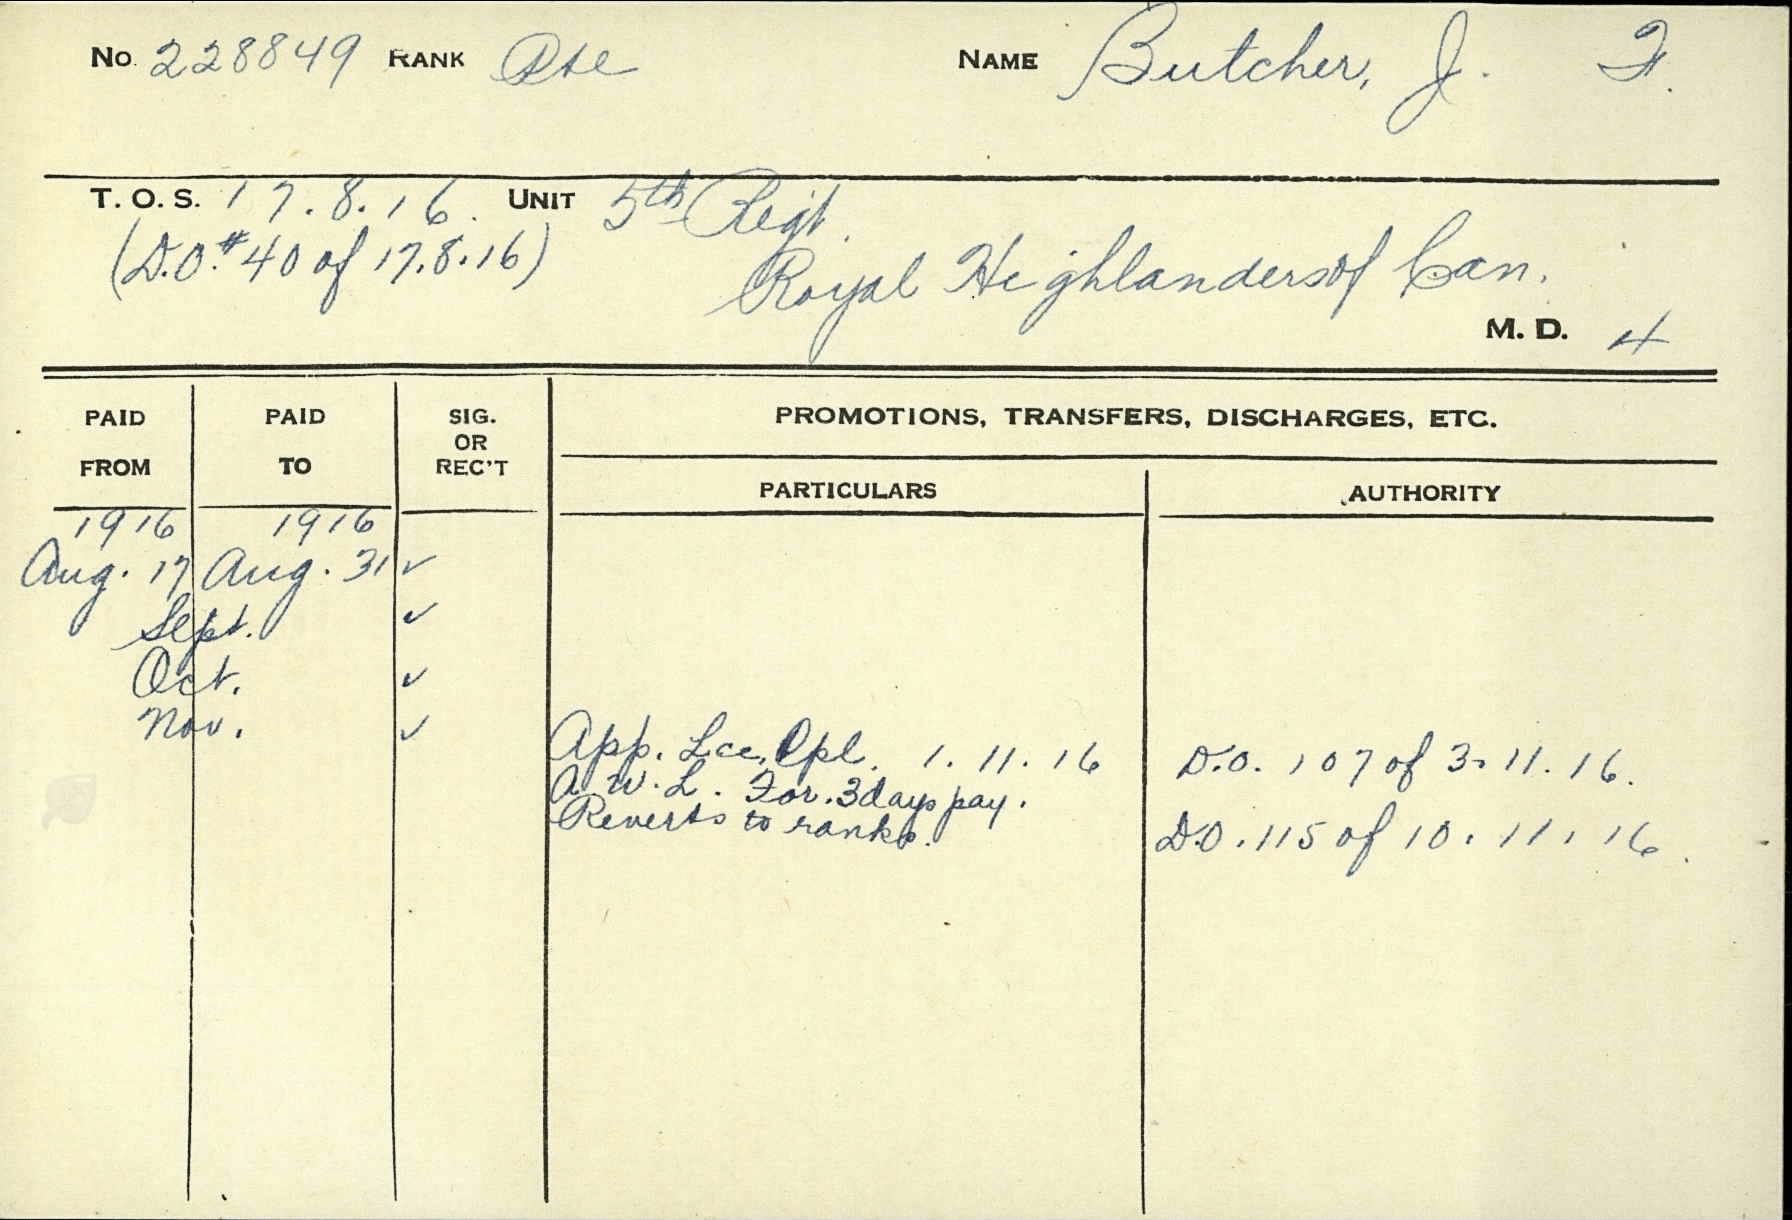 No. 228849 RANK Pte NAME Butcher, J. F.
T. O. S. 17.8.16. UNIT 5th Regt.
(D.O.#40 of 17.8.16)
Royal Highlanders of Can.
M. D. 4
PAID FROM PAID TO SIG. OR REC'T PROMOTIONS, TRANSFERS, DISCHARGES, ETC.
PARTICULARS AUTHORITY
1916 1916
Aug. 17 Aug. 31 ✓
Sept. ✓
Oct. ✓
Nov. ✓
App. Lce. Cpl. 1.11.16 D.O. 107 of 3.11.16.
A.W.L. For. 3 days pay.
Reverts to ranks. D.O. 115 of 10.11.16.